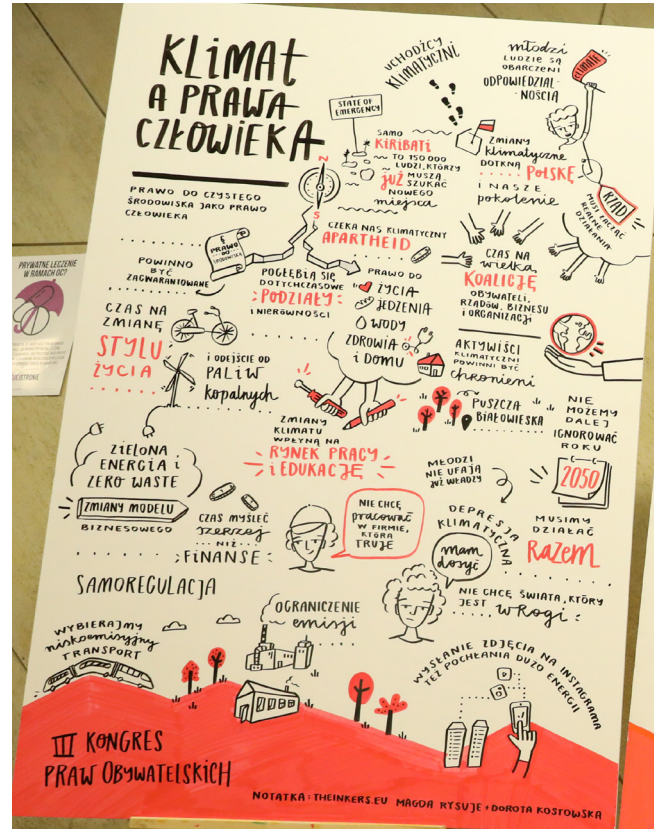 KLiMAt
A PRAWA
CZŁOWiEKA
UCHODŹCY
KLIMATYCZNI
młodzi
LUDZIE SĄ
OBARCZENI
ODPOWIEDZIAL-
-NOŚCIĄ
CLIMATE
STATE OF
EMERGENCY
SAMO
KIRIBATI
TO 150 000
LUDZI, KTÓRZY
JUŻ MUSZĄ
SZUKAĆ
NOWEGO
miejsca
ZMIANY
klimatyczne
DOTKNĄ
POLSKĘ
I NASZE
pokolenie
RZĄD
MUSI ZACZĄĆ
REALNE
DZIAŁANIA
PRAWO DO CZYSTEGO
ŚRODOWISKA JAKO PRAWO
CZŁOWIEKA
N
S
§
PRAWO
DO
ŚRODOWISKA
POWINNO
BYĆ
ZAGWARANTOWANE
CZEKA NAS KLIMATYCZNY
APARTHEID
POGŁĘBIĄ SIĘ
DOTYCHCZASOWE
PODZIAŁY
I NIERÓWNOŚCI
PRAWO DO
ŻYCIA
JEDZENIA
WODY
ZDROWIA
i DOMU
CZAS NA
wielką
KOALICJĘ
OBYWATELI,
RZĄDÓW, BIZNESU
i ORGANIZACJI
CZAS NA
ZMIANĘ
STYLU
ŻYCIA
i ODEJŚCIE OD
PALIW
kopalnych
AKTYWIŚCI
KLIMATYCZNI
POWINNI BYĆ
chronieni
PUSZCZA
BIAŁOWIESKA
NIE
MOŻEMY
DALEJ
IGNOROWAĆ
ROKU
2050
ZMIANY
KLIMATU
WPŁYNĄ NA
RYNEK PRACY
i EDUKACJĘ
ZIELONA
ENERGIA i
ZERO WASTE
ZMIANY MODELU
BIZNESOWEGO
CZAS MYŚLEĆ
szerzej
NIŻ
FINANSE
NIE CHCĘ
pracować
W FIRMIE,
KTÓRA
TRUJE
MŁODZI
NIE UFAJĄ
JUŻ WŁADZY
DEPRESJA
KLIMATYCZNA
mam
dosyć
MUSIMY
DZIAŁAĆ
RAZEM
NIE CHCĘ ŚWIATA, KTÓRY
JEST wROGI
SAMOREGULACJA
OGRANICZENIE
emisji
WYBIERAJMY
niskoemisyjny
TRANSPORT
WYSŁANIE ZDJĘCIA NA INSTAGRAMA
TEŻ POCHŁANIA DUŻO ENERGII
III KONGRES
PRAW OBYWATELSKICH
NOTATKA: THEINKERS.EU MAGDA RYSUJE + DOROTA KOSTOWSKA
PRYWATNE LECZENIE
W RAMACH OC?